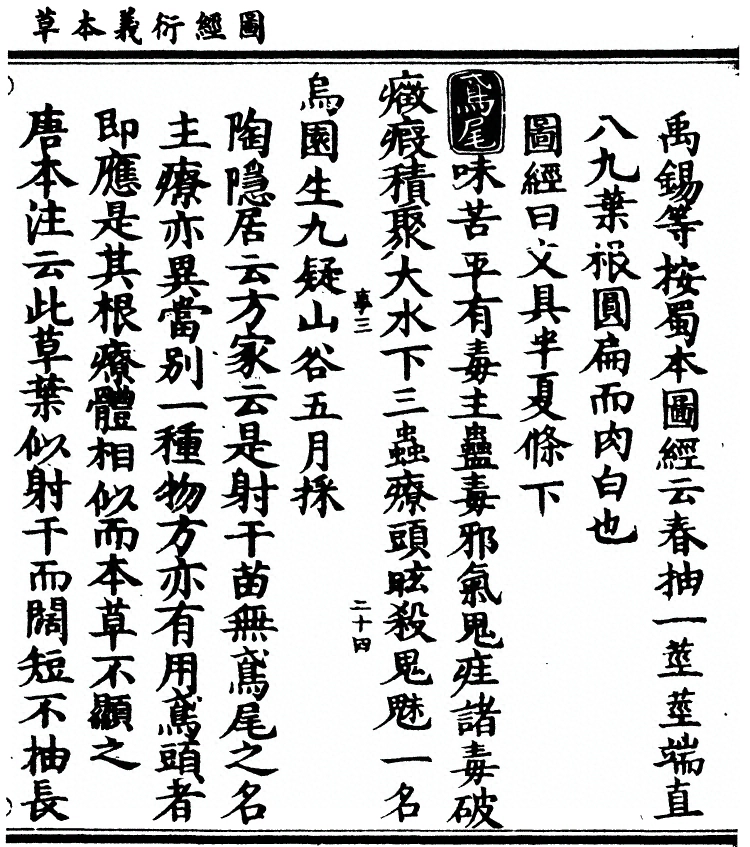 圖經衍義本草
禹錫等按蜀本圖經云春抽一莖莖端直
八九葉根圓扁而肉白也
圖經曰文具半夏條下
鳶尾味苦平有毒主蠱毒邪氣鬼疰諸毒破
癥瘕積聚大水下三蟲療頭眩殺鬼魅一名
烏園生九疑山谷五月採
陶隱居云方家云是射干苗無鳶尾之名
主療亦異當別一種物方亦有用鳶頭者
即應是其根療體相似而本草不顯之
唐本注云此草葉似射干而闊短不抽長
事三
二十四